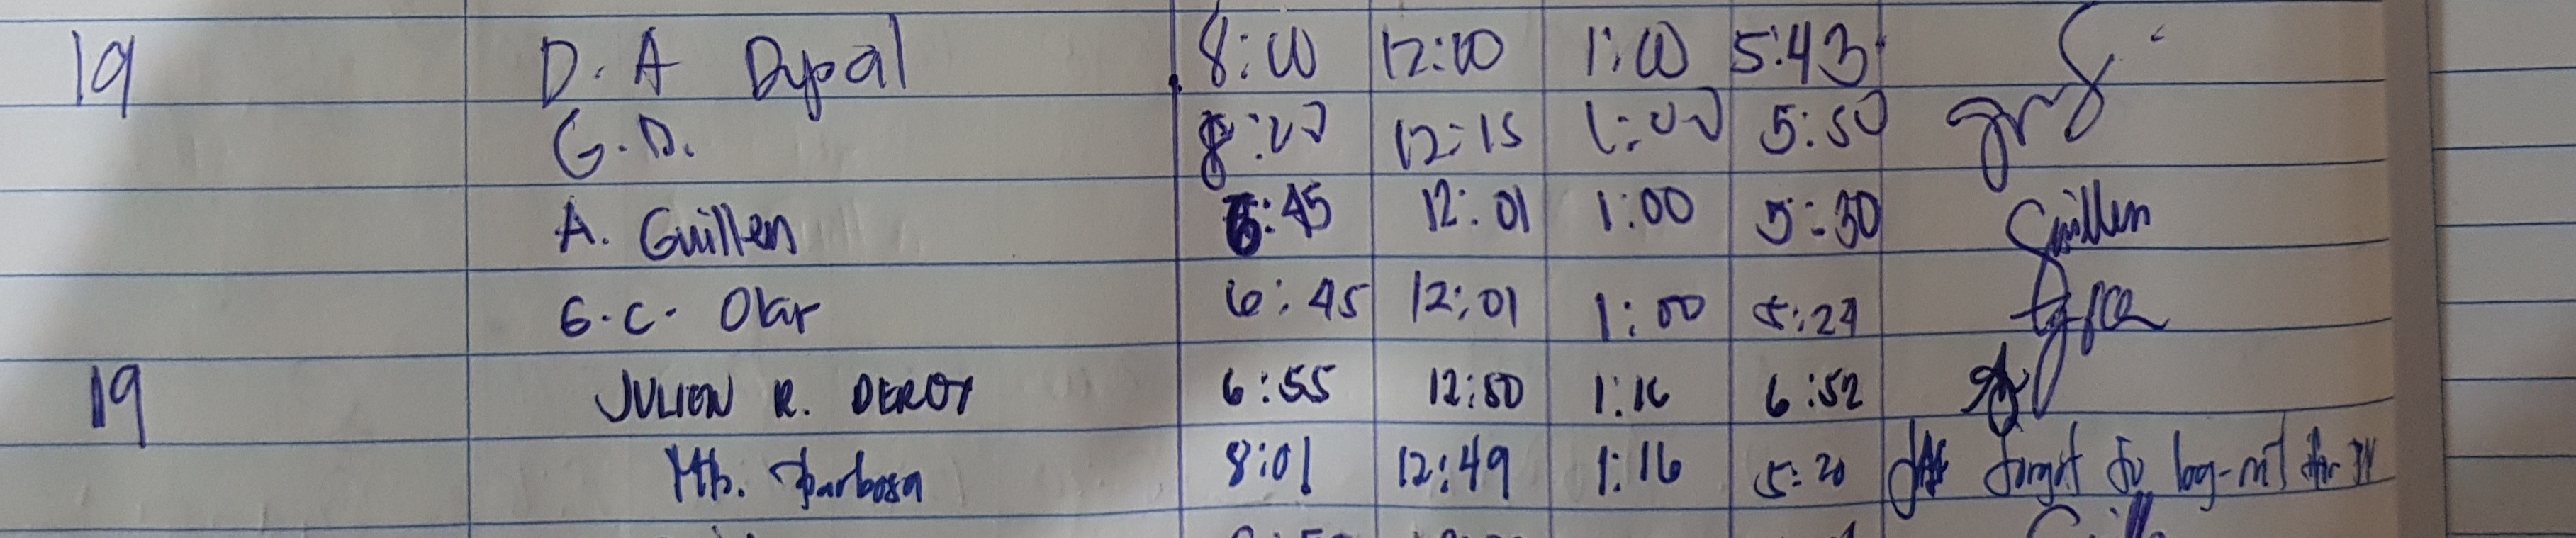 19 D. A Dypal 8:00 12:00 1:00 5:43
G. D. 8:00 12:15 1:00 5:50
A. Guillen 6:45 12:01 1:00 5:30 Guillen
G. C. Olar 6:45 12:01 1:00 5:29
19 JULIEN R. DEROY 6:55 12:50 1:16 6:52
Mb. Barbosa 8:01 12:49 1:16 5:20 forgot to log-out for